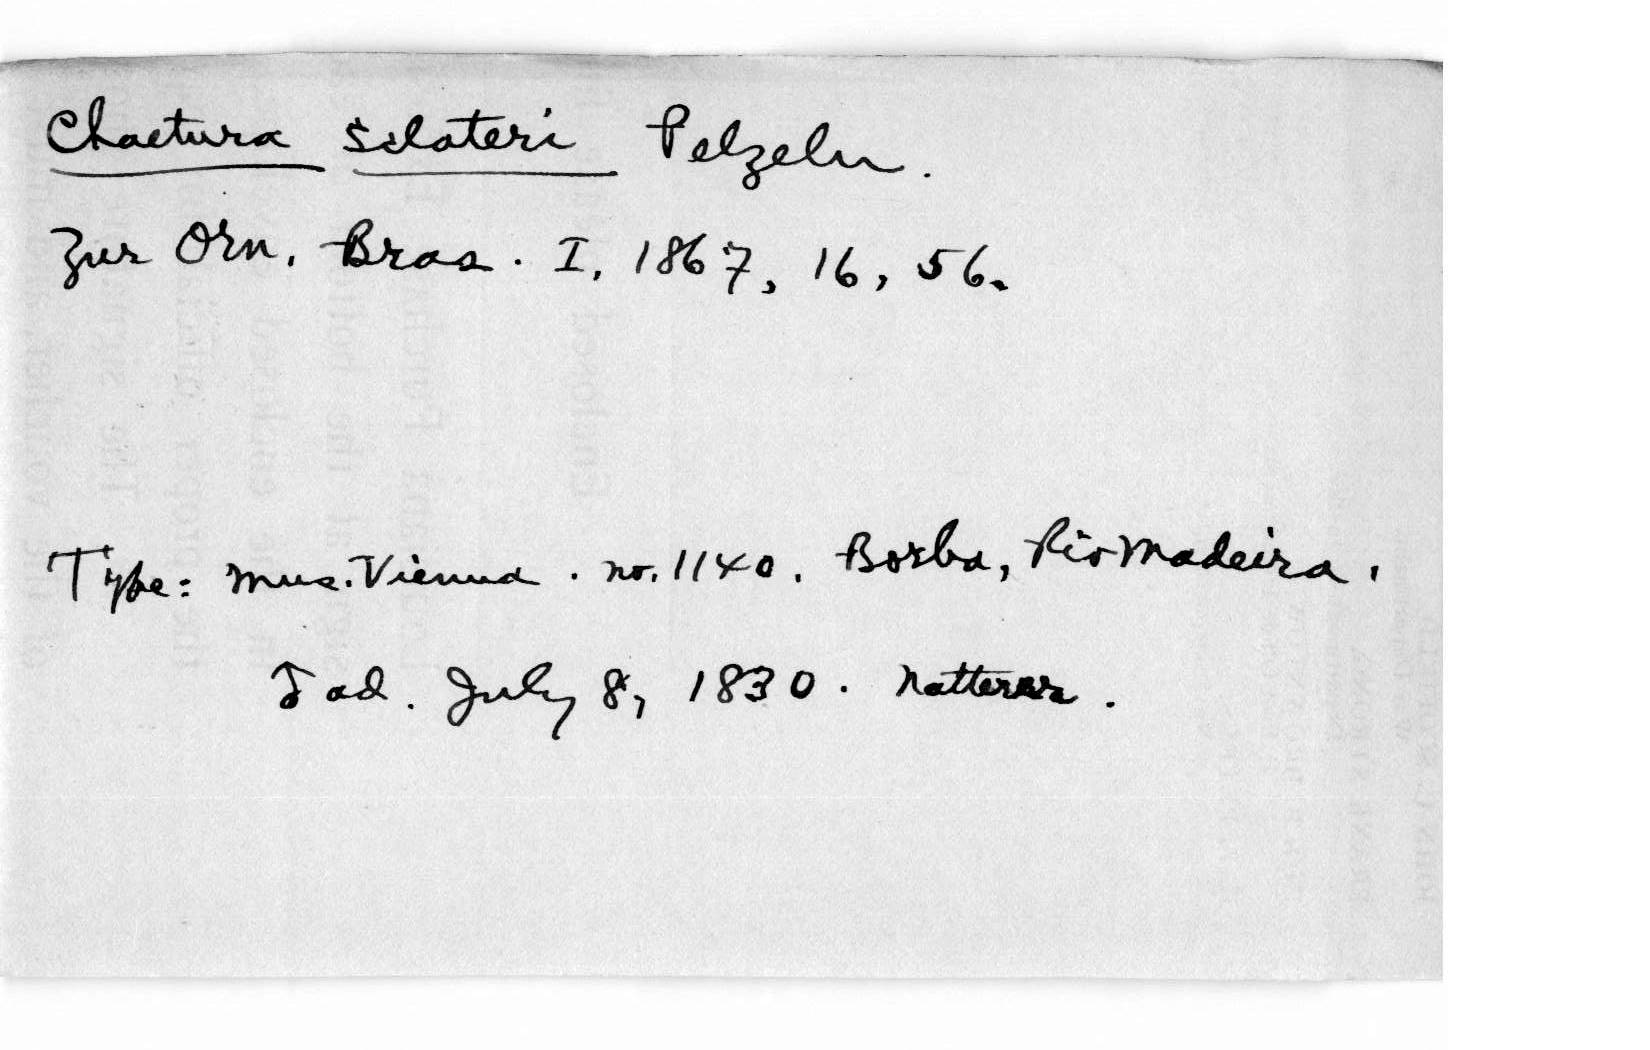 Chaetura sclateri Pelzeln.
Zur Orn. Bras. I, 1867, 16, 56.
Type: Mus. Vienna. no. 1140. Borba, Rio Madeira.
♂ ad. July 8, 1830. Natterer.